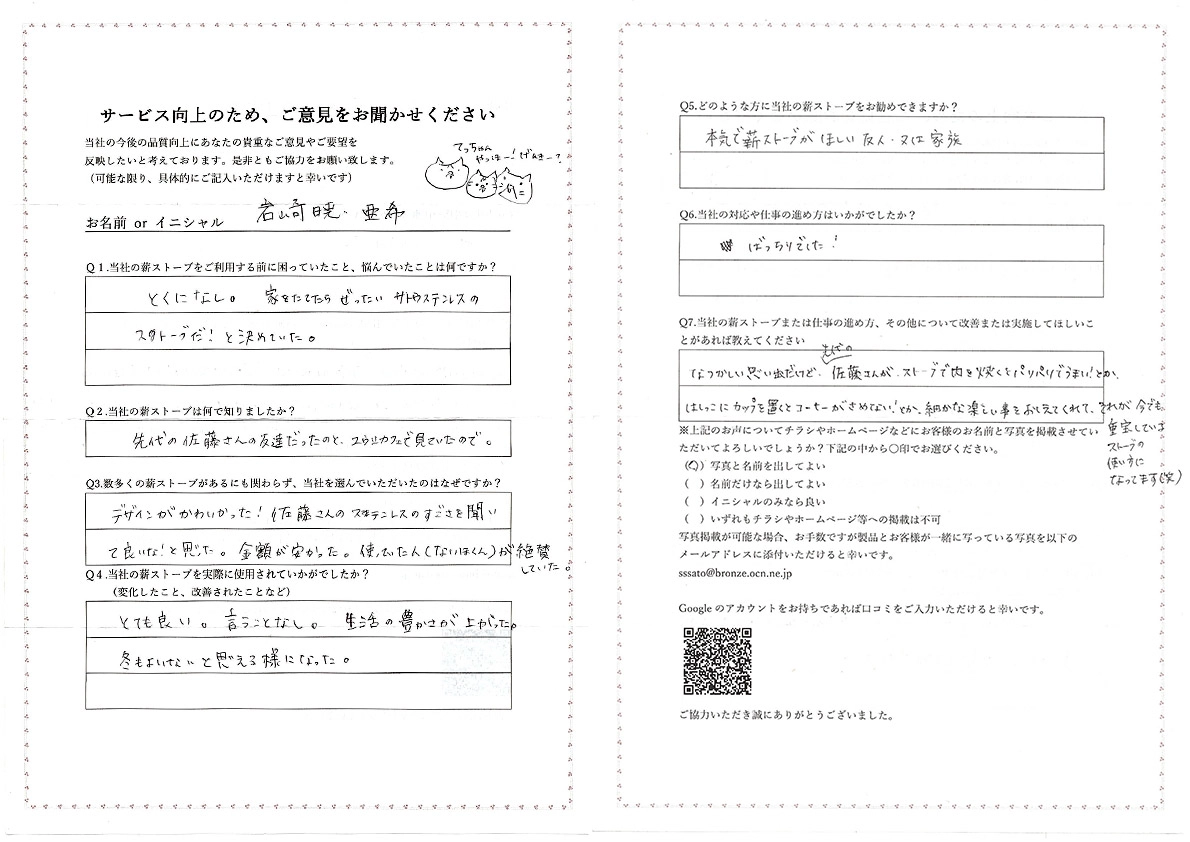 サービス向上のため、ご意見をお聞かせください
当社の今後の品質向上にあなたの貴重なご意見やご要望を
反映したいと考えております。是非ともご協力をお願い致します。
（可能な限り、具体的にご記入いただけますと幸いです）
てっちゃん
やっほー！げんきー？
お名前 or イニシャル 岩崎暁・亜希
Q１.当社の薪ストーブをご利用する前に困っていたこと、悩んでいたことは何ですか？
とくになし。 家をたてたらぜったいサトウステンレスの
ストーブだ！と決めていた。
Q２.当社の薪ストーブは何で知りましたか？
先代の佐藤さんの友達だったのと、カフェで見ていたので。
Q3.数多くの薪ストーブがあるにも関わらず、当社を選んでいただいたのはなぜですか？
デザインがかわいかった！佐藤さんのステンレスのすごさを聞い
て良いな！と思った。金額が安かった。使っていた人(ないほくん)が絶賛
していた。
Q４.当社の薪ストーブを実際に使用されていかがでしたか？
（変化したこと、改善されたことなど）
とても良い。言うことなし。生活の豊かさが上がった。
冬もよいなぃと思える様になった。
Q5.どのような方に当社の薪ストーブをお勧めできますか？
本気で薪ストーブがほしい友人・又は家族
Q6.当社の対応や仕事の進め方はいかがでしたか？
ばっちりでした！
Q7.当社の薪ストーブまたは仕事の進め方、その他について改善または実施してほしいこ
とがあれば教えてください
先代の
なつかしい思い出だけど、佐藤さんが、ストーブで肉を焼くとパリパリでうまい！とか、
はしっこにカップを置くとコーヒーがさめない！とか、細かな楽しい事をおしえてくれて、それが今でも
重宝している
ストーブの
使い方に
なってます(笑)
※上記のお声についてチラシやホームページなどにお客様のお名前と写真を掲載させてい
ただいてよろしいでしょうか？下記の中から〇印でお選びください。
(〇) 写真と名前を出してよい
( ) 名前だけなら出してよい
( ) イニシャルのみなら良い
( ) いずれもチラシやホームページ等への掲載は不可
写真掲載が可能な場合、お手数ですが製品とお客様が一緒に写っている写真を以下の
メールアドレスに添付いただけると幸いです。
sssato@bronze.ocn.ne.jp
Google のアカウントをお持ちであれば口コミをご入力いただけると幸いです。
ご協力いただき誠にありがとうございました。